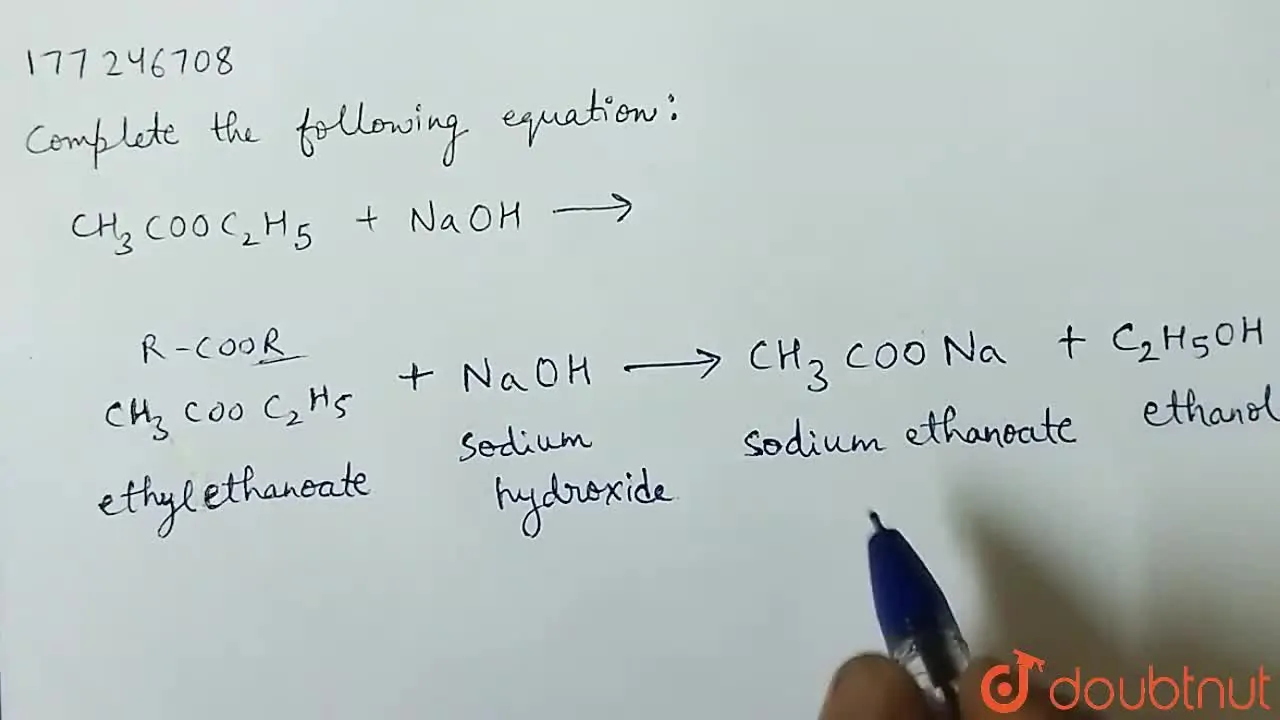 177246708
Complete the following equation:
CH₃COOC₂H₅ + NaOH ⟶
R-COOR
CH₃COOC₂H₅ + NaOH ⟶ CH₃COONa + C₂H₅OH
ethylethanoate sodium hydroxide sodium ethanoate ethanol
doubtnut